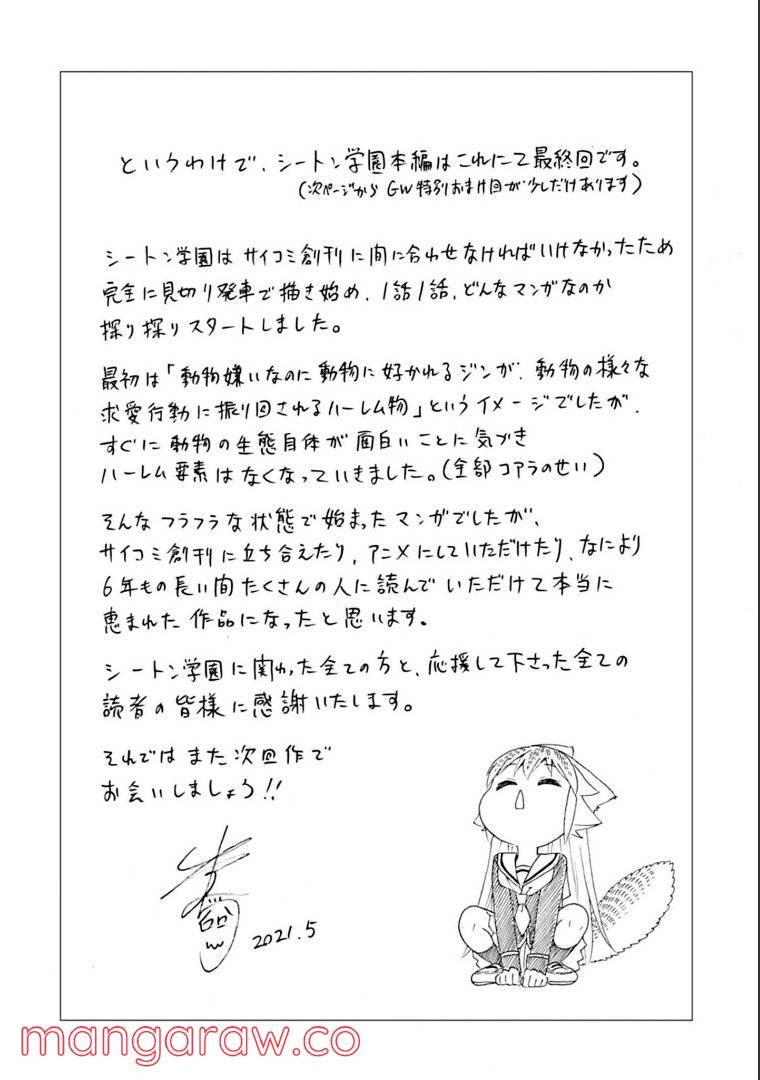 というわけで、シートン学園本編はこれにて最終回です。
(次ページから GW特別おまけ回が少しだけあります)
シートン学園は サイコミ創刊に間に合わせなければいけなかったため
完全に見切り発車で描き始め、1話1話、どんなマンガなのか
探り探りスタートしました。
最初は「動物嫌いなのに動物に好かれるジンが、動物の様々な
求愛行動に振り回されるハーレム物」というイメージでしたが、
すぐに動物の生態自体が面白いことに気づき
ハーレム要素はなくなっていきました。(全部コアラのせい)
そんなフラフラな状態で始まったマンガでしたが、
サイコミ創刊に立ち合えたり、アニメにしていただけたり、なにより
6年もの長い間たくさんの人に読んでいただけて本当に
恵まれた作品になったと思います。
シートン学園に関わった全ての方と、応援して下さった全ての
読者の皆様に感謝いたします。
それでは また次回作で
お会いしましょう!!
2021.5
mangaraw.co